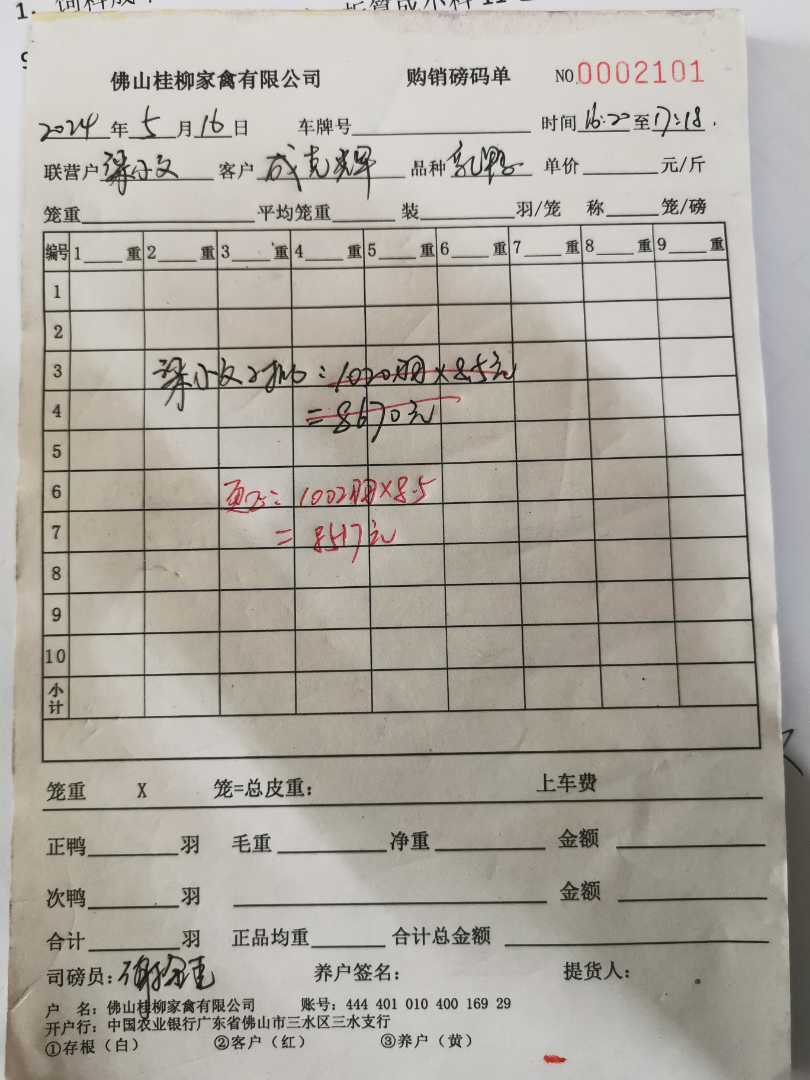 佛山桂柳家禽有限公司 购销磅码单 NO.0002101
2024年5月16日 车牌号 时间16:20至17:18
联营户梁小文 客户成克辉 品种乳鸭 单价 元/斤
笼重 平均笼重 装 羽/笼 称 笼/磅
编号 1 重 2 重 3 重 4 重 5 重 6 重 7 重 8 重 9 重
1
2
3
梁小文 : 1020羽×8.5元
4
=8670元
5
6
1002羽×8.5
7
=8517元
8
9
10
小计
笼重 X 笼=总皮重: 上车费
正鸭 羽 毛重 净重 金额
次鸭 羽 金额
合计 羽 正品均重 合计总金额
司磅员: 养户签名: 提货人:
户 名: 佛山桂柳家禽有限公司 账号: 444 401 010 400 169 29
开户行: 中国农业银行广东省佛山市三水区三水支行
①存根(白) ②客户(红) ③养户(黄)